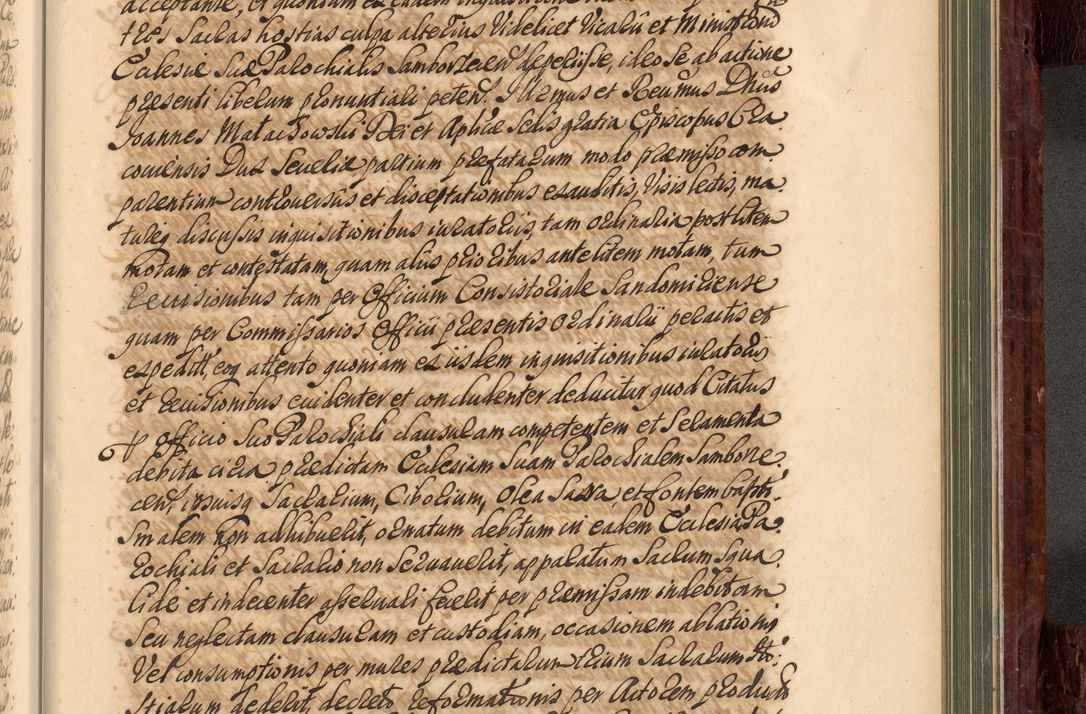 acceptante, et quoniam ex eadem inquisitione
tres Sacras hostias culpa alterius Videlicet Vicarii et Ministrorum
Ecclesiæ Suæ Parochialis Samborzecen deperiisse, ideo se ab actione
præsenti liberum pronuntiari peten. Illrmus et Reurmus Dnus
Joannes Małachowski Dei et Aplicæ Sedis gratia Episcopus Cra„
couiensis Dux Seueriæ partium præfatarum modo præmisso com„
parentium controuersiis et disceptationibus exauditis, Visis lectis, ma„
tureq discussis inquisitionibus iuratoriis, tam ordinaria post litem
motam et contestatam, quam aliis prioribus ante litem motam, tum
reuisionibus tam per Officium Consistoriale Sandomiriense
quam per Commissarios Officii præsentis ordinarii peractis et
expeditt, eoq attento quoniam ex iisdem inquisitionibus iuratoriis
et reuisionibus euidenter et concludenter deducitur quod Citatus
p officio Suo Parochiali clausuram competentem et Seramenta
debita circa prædictam Ecclesiam Suam Parochialem Samborze„
cen, ipsiusq Sacrarium, Ciborium, Olea Sacra, et fontem baptis„
malem non adhibuerit, ornatum debitum in eadem Ecclesia Pa„
rochiali et Sacrario non Seruauerit, apparatum Sacrum Squa„
lide et indecenter asseruari fecerit per præmissam indebitam
Seu neglectam clausuram et custodiam, occasionem ablationis
Vel consumptionis per mures prædictarum trium Sacrarum Ho„
stiarum dederit, decreto reformationis per Actorem producto